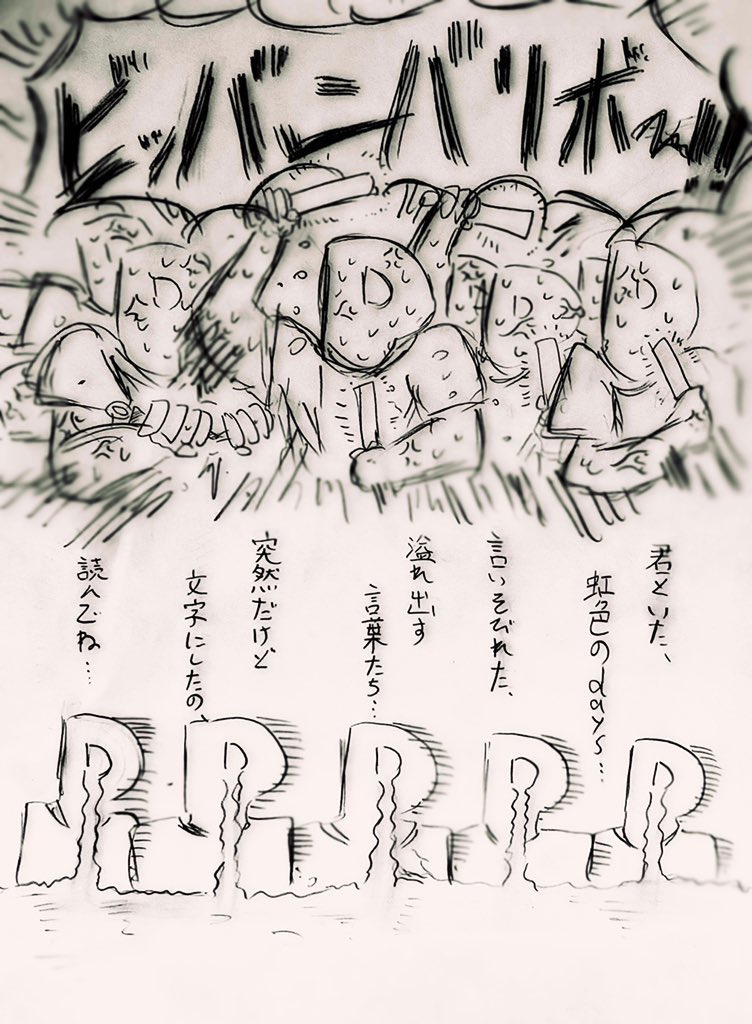 ビッバンバリボ～ッ
君といた、
虹色のdays…
言いそびれた、
溢れ出す
言葉たち…
突然だけど
文字にしたの、
読んでね…